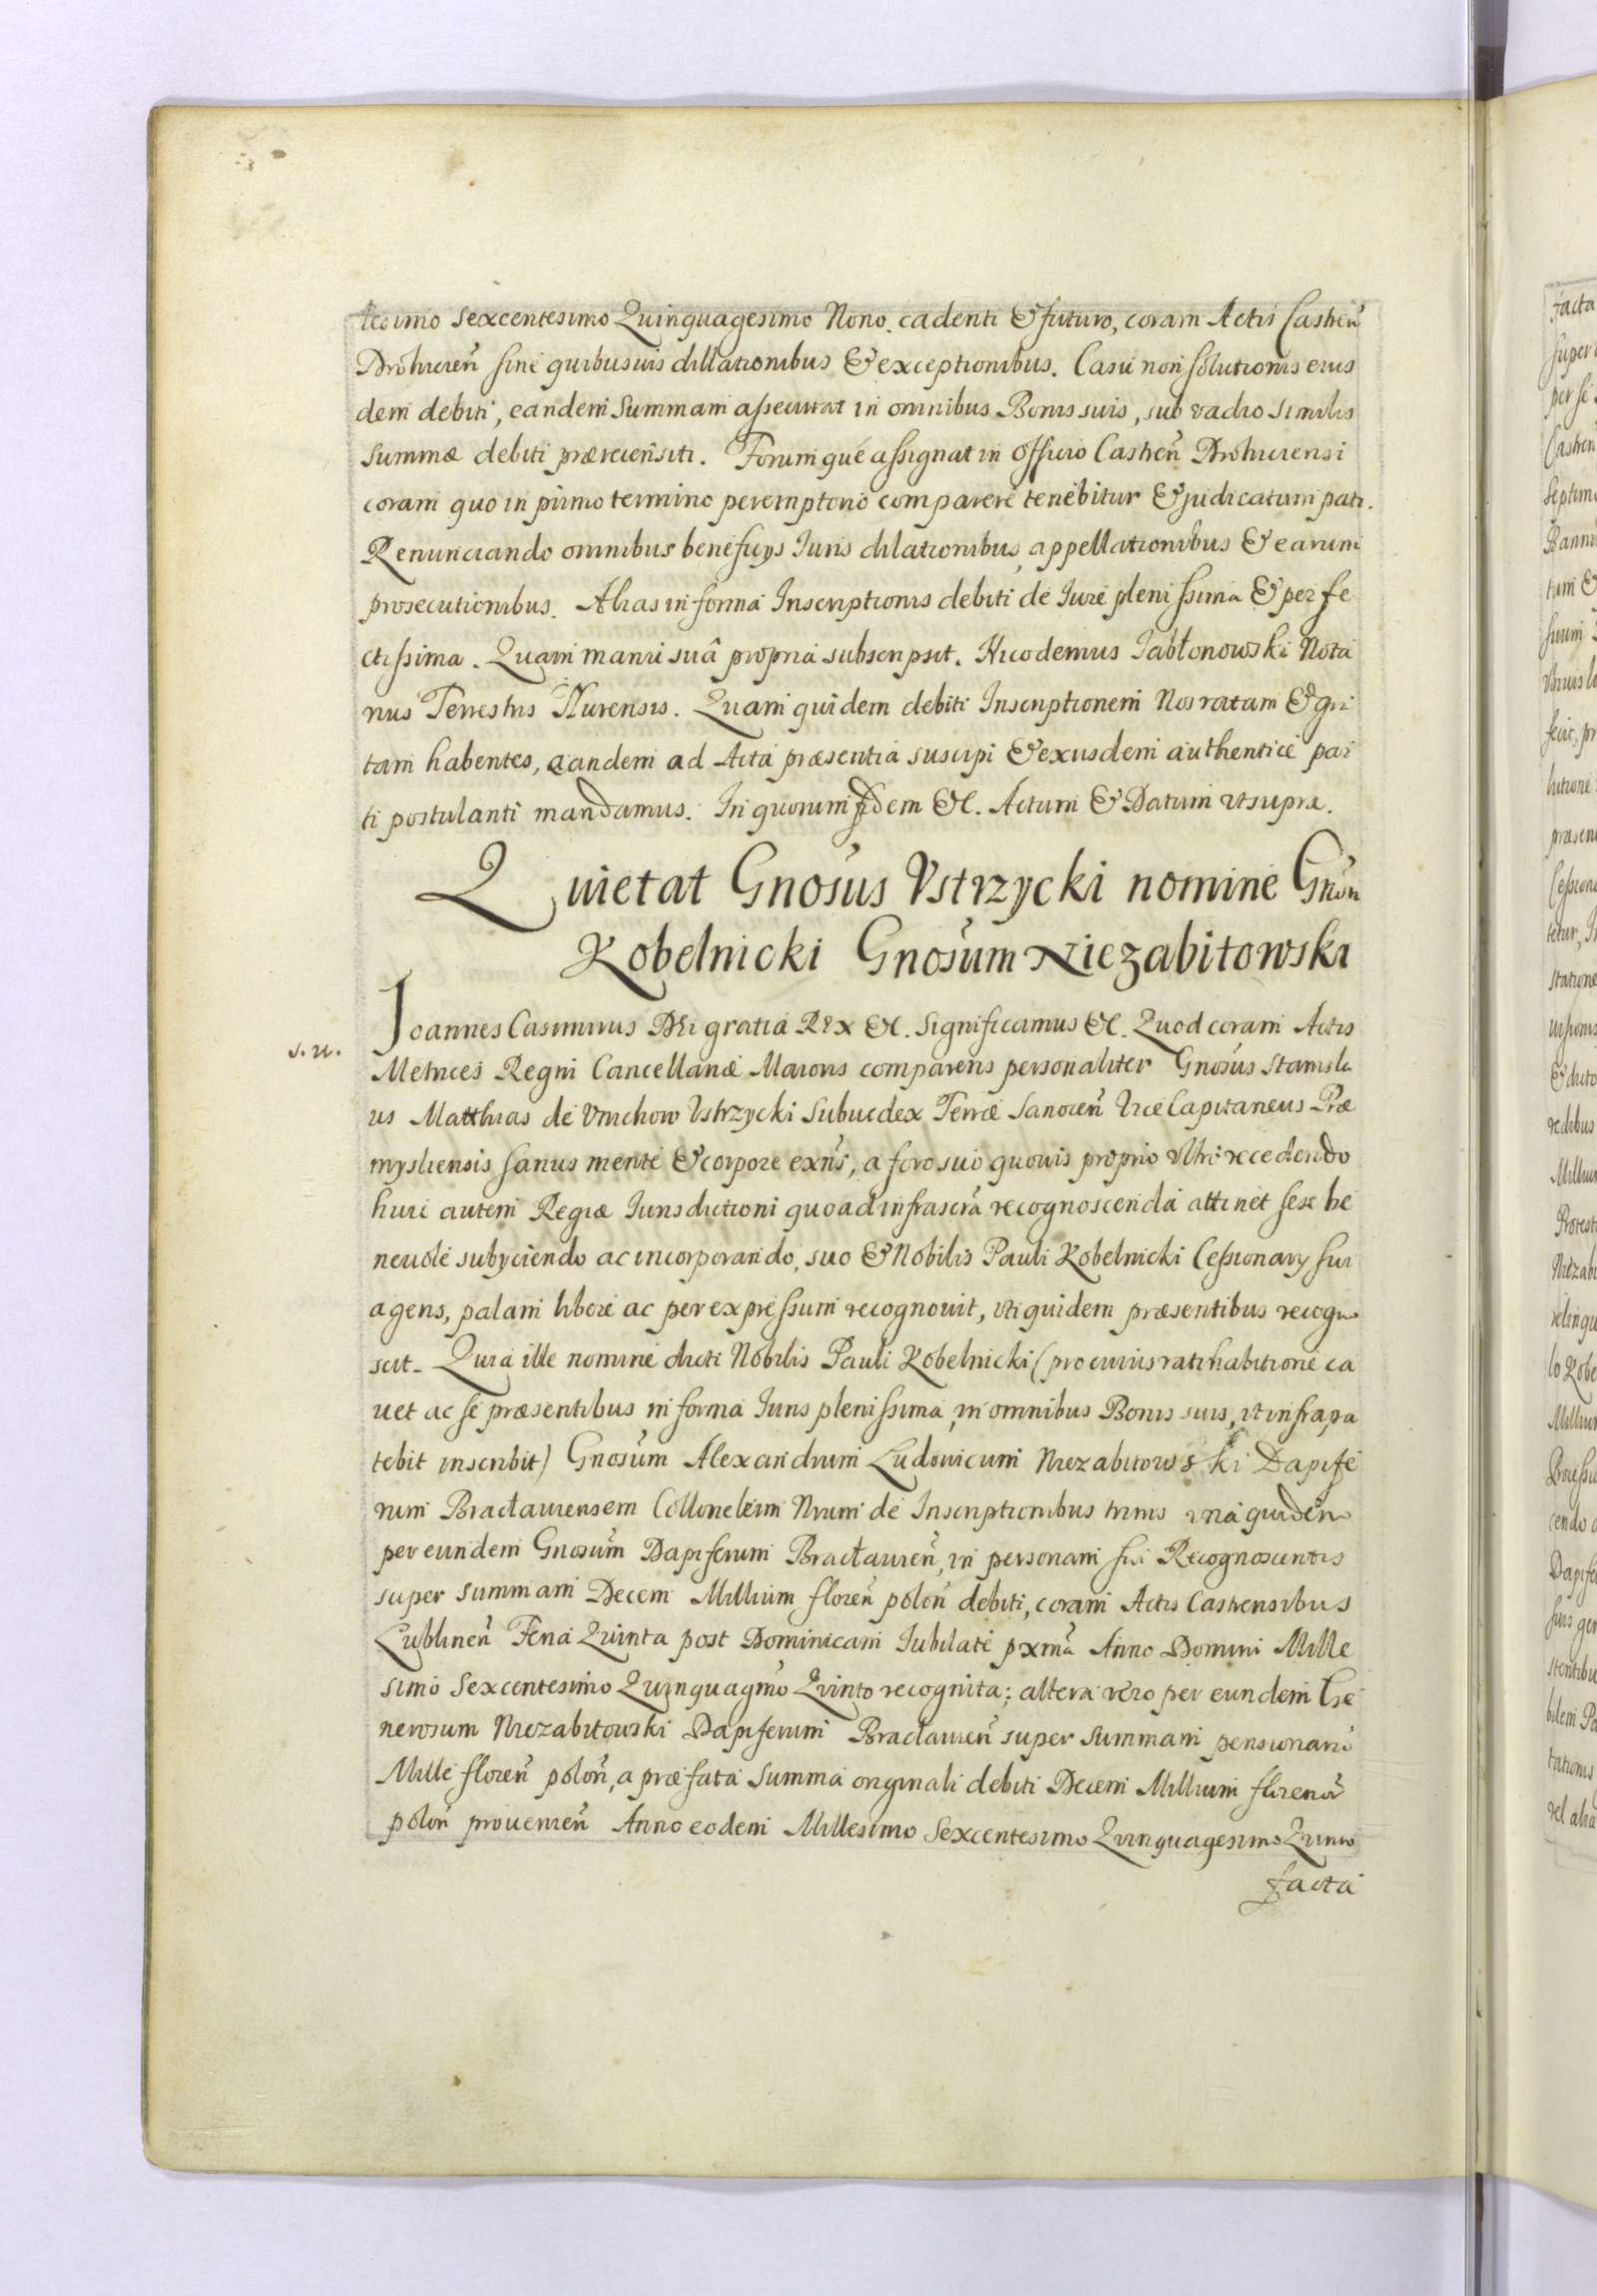 lesimo Sexcentesimo Quinquagesimo Nono. cadenti & futuro, coram Actis Castreñ
Drohicieñ sine quibusuis dillationibus & exceptionibus. Casu non solutionis eius
dem debiti, eandem Summam assecurat in omnibus Bonis suis, sub vadio similis
Summæ debiti prærecensiti. Forumque assignat in Officio Castreñ Drohiciensi
coram quo in primo termino peremptorio comparere tenebitur & judicatum pati.
Renunciando omnibus beneficijs Iuris dilationibus, appellationibus & earum
prosecutionibus. Alias in forma Inscriptionis debiti de Iure plenissima & perfe
ctissima. Quam manu suâ propria subscripsit. Nicodemus Jabłonowski Nota
rius Terrestris Nurensis. Quam quidem debiti Inscriptionem Nos ratam & gra
tam habentes, eandem ad Acta præsentia suscipi & exeiusdem authentice par
ti postulanti mandamus. In quorum fidem &c. Actum & Datum vt supra.
Quietat Gnosus Vstrzycki nomine Gnōn
Kobelnicki Gnosum Niezabitowski
s. n.
Joannes Casimirus DEi gratia REx &c. Significamus &c. Quod coram Actis
Metrices Regni Cancellariæ Maioris comparens personaliter Gnosus Stanisla
us Matthias de Vnichow Vstrzycki Subiudex Terræ Sanoceñ ViceCapitaneus Præ
mysliensis sanus mente & corpore exñs, a foro suo quouis proprio vltro recedendo
huic autem Regiæ Iurisdictioni quoad infrascrā recognoscenda attinet sese be
neuole subyciendo ac incorporando, suo & Nobilis Pauli Kobelnicki Cessionarij sui
agens, palam libere ac per expressum recognouit, vti quidem præsentibus recogno
scit. Quia ille nomine dicti Nobilis Pauli Kobelnicki (pro cuius ratihabitione ca
uet ac se præsentibus in forma Iuris plenissima, in omnibus Bonis suis, vt infra pa
tebit inscribit) Gnosum Alexandrum Ludouicum Niezabitowski Dapife
rum Bracłauiensem Collonellum Nrum de Inscriptionibus trinis vna quidem
per eundem Gnosum Dapiferum Bracłauieñ, in personam sui Recognoscentis
super summam Decem Millium floreñ poloñ debiti, coram Actis Castrensibus
Lublineñ Feria Quinta post Dominicam Iubilate pxma Anno Domini Mille
simo Sexcentesimo Quinquagmo Quinto recognita; altera vero per eundem Ge
nerosum Niezabitowski Dapiferum Bracłauieñ super Summam pensionariā
Mille floreñ poloñ, a præfata Summa originali debiti Decem Millium florenoř
poloñ prouenieñ Anno eodem Millesimo Sexcentesimo Quinquagesimo Quinto
facta